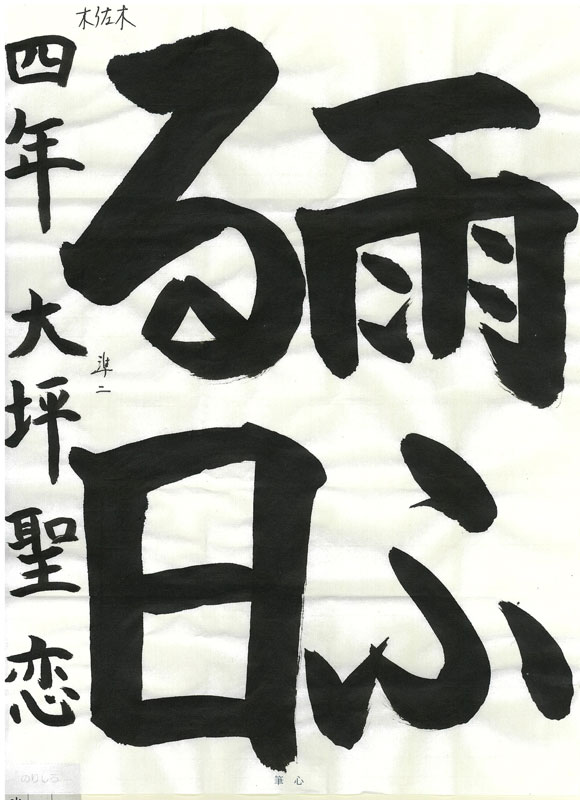 雨ふ
る日
四年 大坪聖恋
木佐木
準二
筆心
のりしろ